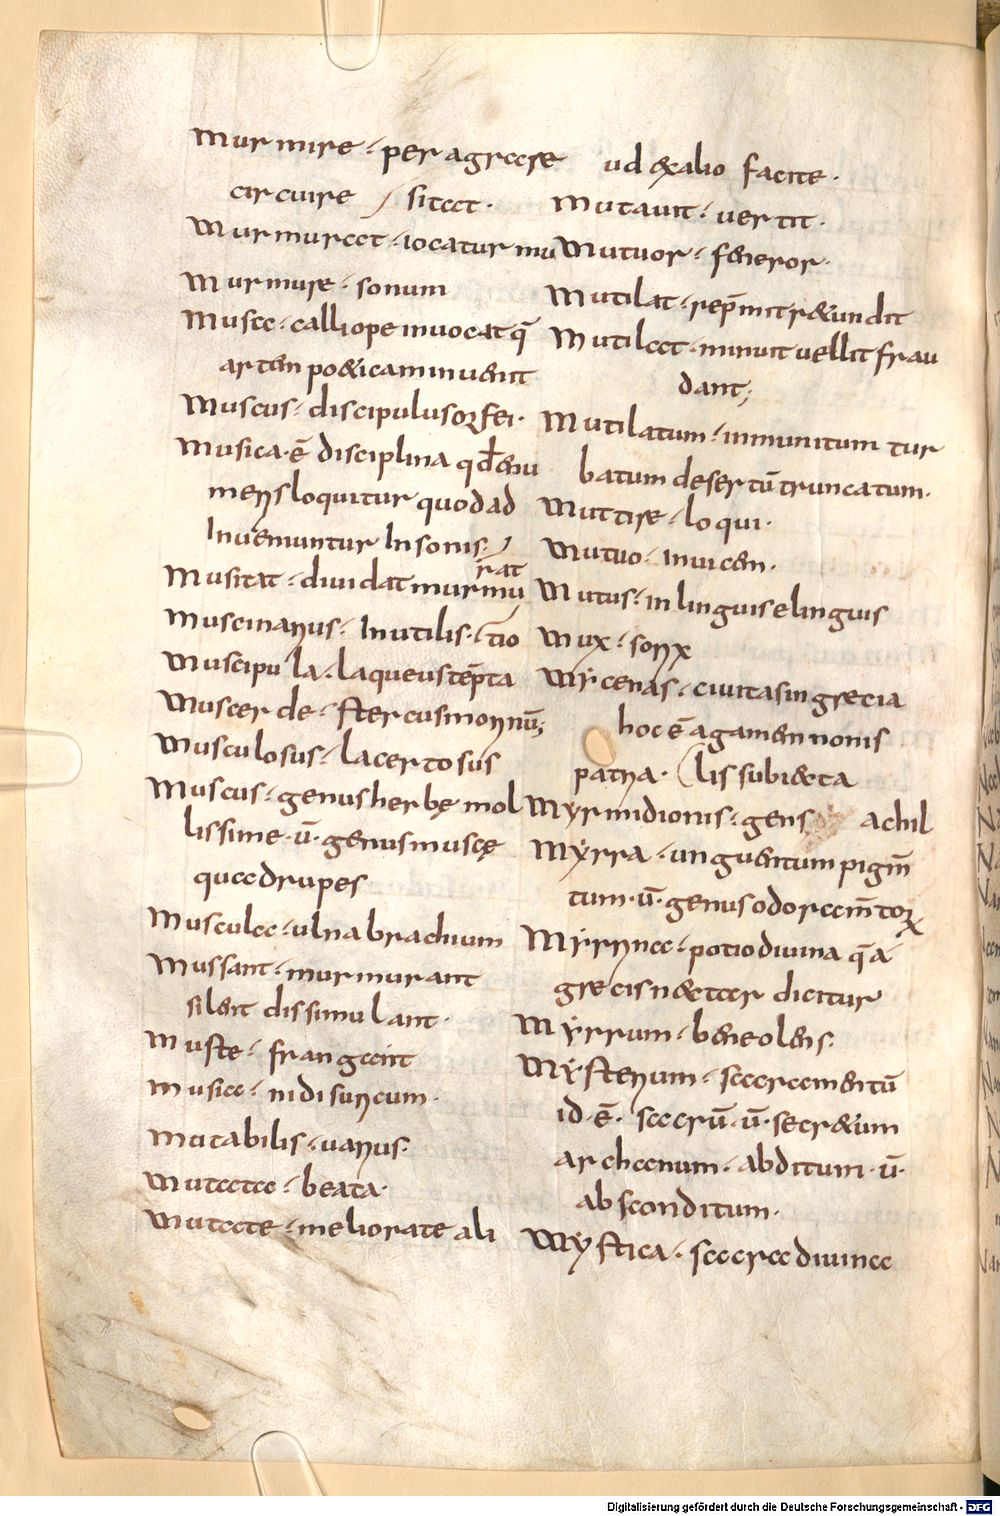 Murmire · peragrare
circuire / sitat ·
Murmurat · iocatur mu
Murmure · sonum
Musae · calliope inuocat q̄
artem poeticam inuenit
Muscus · discipulus orfei ·
Musica · ē disciplina qđ enu
meris loquitur quod ad
Inueniuntur In sonis · /
rat
Musitat · diuidat murmu
Muscinarius · Inutilis · tio
Muscipula · laqueus tēpta
Muscerde · stercus morinū;
Musculosus · lacertosus
Muscus · genus herbę mol
lissime · ū · genus muscę
qua drupes
Muscula · ulna brachium
Mussant · murmurant
silent dissimulant ·
Muste · frangant
Musica · nidi suricum ·
Mutabilis · uarius ·
Mutata · beata ·
Mutate · meliorate ali
ud ex alio facite ·
Mutauit · uertit ·
Mutuor · feneror ·
Mutilat · rep̄mit retundit
Mutilat · minuit uellit frau
dant;
Mutilatum · inmunitum tur
batum desertū truncatum ·
Muttire · loqui ·
Mutuo · inuicem ·
Mutus · in linguis elinguis
Mux · sorix
Mẏcenas · ciuitas in grecia
hoc ē agamennonis
patria · ( lis subiecta
Myrmidionis · gens achil
Mẏrra · unguentum pigm̄
tum · ū · genus odoram̄toꝝ
Mẏrrina · potio diuina q̄ a
grecis nectar dicitur
Mẏrrum · bene olens ·
Mẏsterium · sacramentū
id · ē · sacrū · ū · secretum
archanum · abditum · ū ·
absconditum ·
Mẏstica · sacra diuina
Digitalisierung gefördert durch die Deutsche Forschungsgemeinschaft - DFG